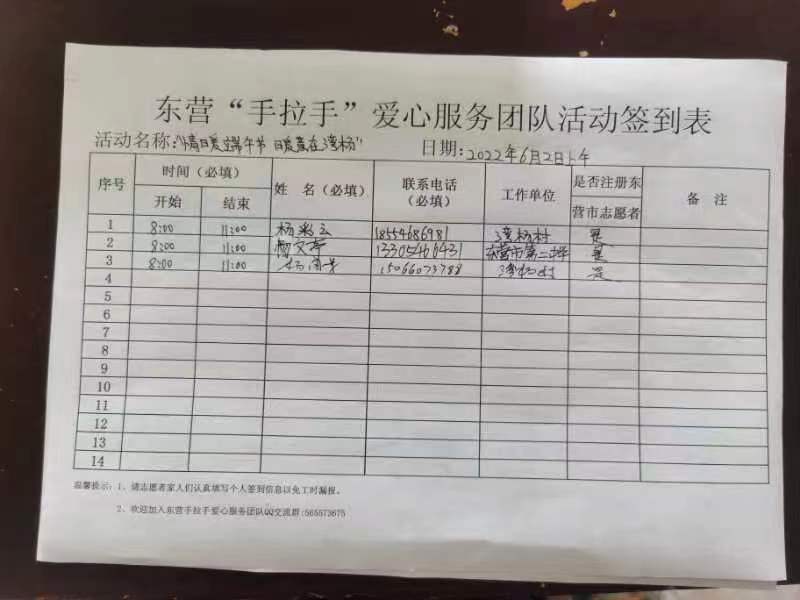 东营“手拉手”爱心服务团队活动签到表
活动名称:“情暖端午节 日爱嘉在湾杨” 日期:2022年6月2日上午
序号 时间（必填） 姓 名（必填） 联系电话（必填） 工作单位 是否注册东营市志愿者 备 注
开始 结束
1 8:00 11:00 杨彩云 18554686981 湾杨村 是
2 8:00 11:00 杨文 13305466431 东营市第二 是
3 8:00 11:00 杨 15066073788 湾杨村 是
4
5
6
7
8
9
10
11
12
13
14
温馨提示：1、请志愿者家人们认真填写个人签到信息以免工时漏报。
2、欢迎加入东营手拉手爱心服务团队QQ交流群:565573675